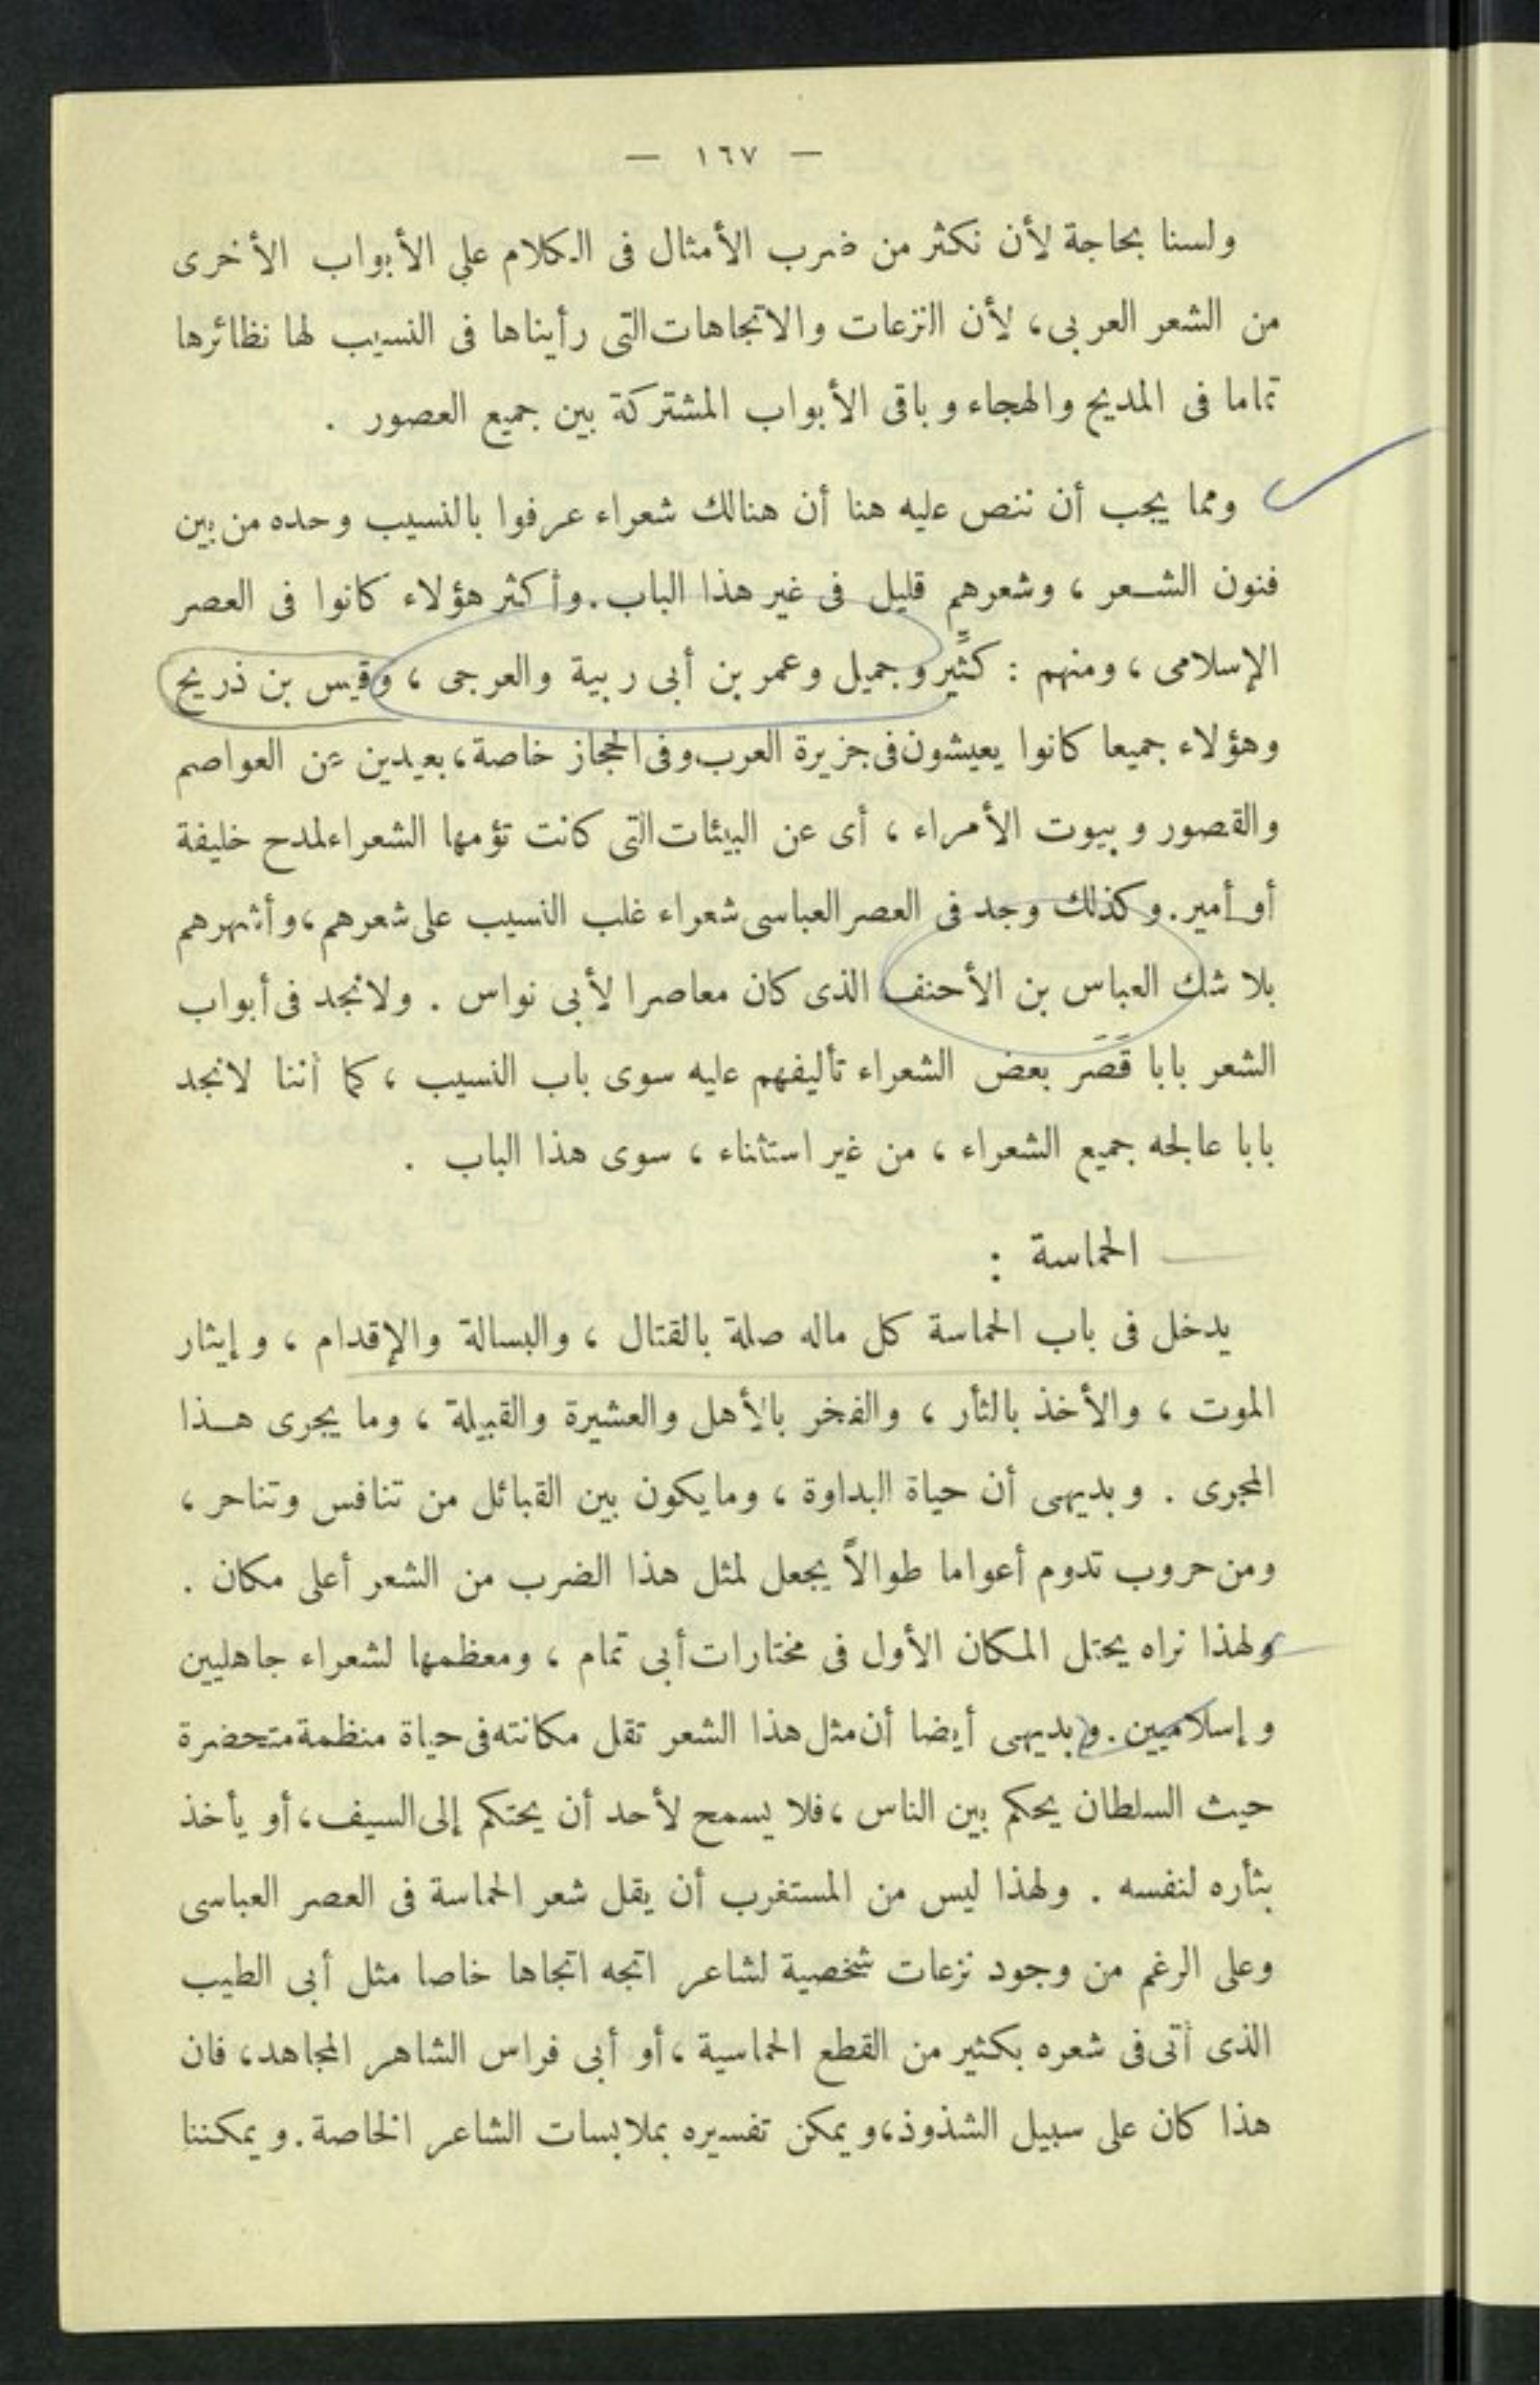 — ١٦٧ —
ولسنا بحاجة لأن نكثر من ضرب الأمثال فى الكلام على الأبواب الأخرى
من الشعر العربى، لأن النزعات والاتجاهات التى رأيناها فى النسيب لها نظائرها
تماما فى المديح والهجاء وباقى الأبواب المشتركة بين جميع العصور .
ومما يجب أن ننص عليه هنا أن هنالك شعراء عرفوا بالنسيب وحده من بين
فنون الشعر ، وشعرهم قليل فى غير هذا الباب. وأكثر هؤلاء كانوا فى العصر
الإسلامى ، ومنهم : كثيِّر وجميل وعمر بن أبى ربية والعرجى ، وقيس بن ذريح
وهؤلاء جميعا كانوا يعيشون فى جزيرة العرب وفى الحجاز خاصة، بعيدين عن العواصم
والقصور وبيوت الأمراء ، أى عن البيئات التى كانت تؤمها الشعراء لمدح خليفة
أو أمير. وكذلك وجد فى العصر العباسى شعراء غلب النسيب على شعرهم، وأشهرهم
بلا شك العباس بن الأحنف الذى كان معاصرا لأبى نواس . ولا نجد فى أبواب
الشعر بابا قَصَر بعض الشعراء تأليفهم عليه سوى باب النسيب ، كما أننا لا نجد
بابا عالجه جميع الشعراء ، من غير استثناء ، سوى هذا الباب .
الحماسة :
يدخل فى باب الحماسة كل ماله صلة بالقتال ، والبسالة والإقدام ، وإيثار
الموت ، والأخذ بالثأر ، والفخر بالأهل والعشيرة والقبيلة ، وما يجرى هذا
المجرى . وبديهى أن حياة البداوة ، وما يكون بين القبائل من تنافس وتناحر ،
ومن حروب تدوم أعواما طوالاً يجعل لمثل هذا الضرب من الشعر أعلى مكان .
ولهذا نراه يحتل المكان الأول فى مختارات أبى تمام ، ومعظمها لشعراء جاهليين
وإسلاميين. وبديهى أيضا أن مثل هذا الشعر تقل مكانته فى حياة منظمة متحضرة
حيث السلطان يحكم بين الناس ، فلا يسمح لأحد أن يحتكم إلى السيف، أو يأخذ
بثأره لنفسه . ولهذا ليس من المستغرب أن يقل شعر الحماسة فى العصر العباسى
وعلى الرغم من وجود نزعات شخصية لشاعر اتجه اتجاها خاصا مثل أبى الطيب
الذى أتى فى شعره بكثير من القطع الحماسية ، أو أبى فراس الشاهر المجاهد، فان
هذا كان على سبيل الشذوذ، ويمكن تفسيره بملابسات الشاعر الخاصة. ويمكننا